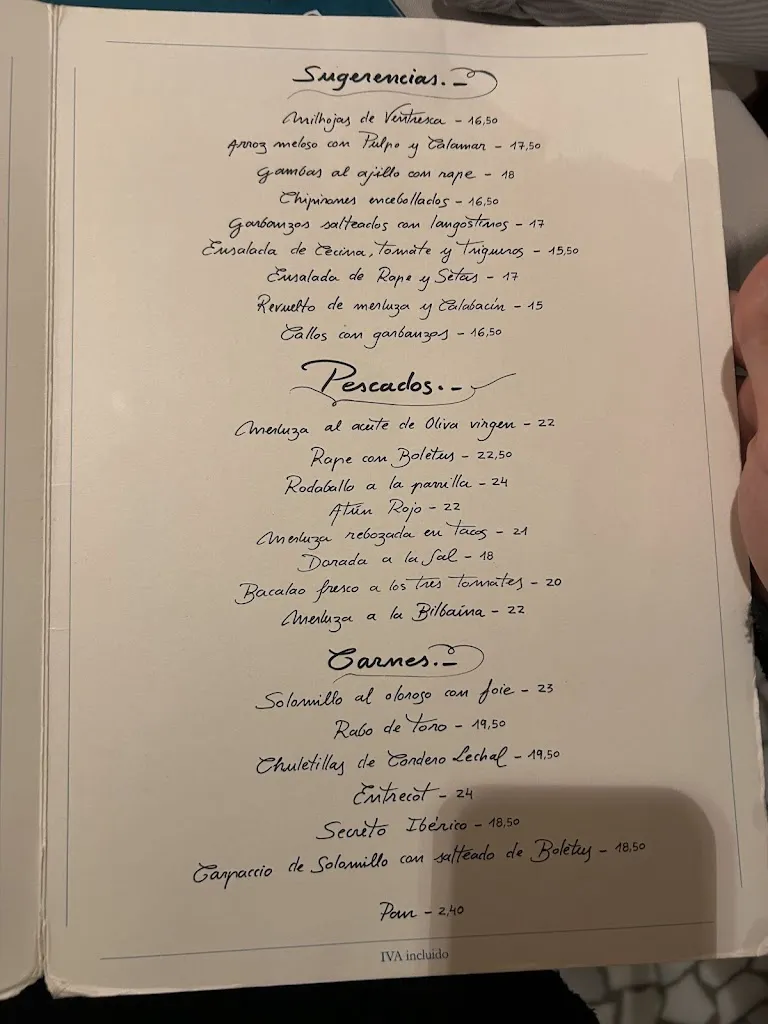 Sugerencias.-
Milhojas de Ventresca - 16,50
Arroz meloso con Pulpo y Calamar - 17,50
Gambas al ajillo con rape - 18
Chipirones encebollados - 16,50
Garbanzos salteados con langostinos - 17
Ensalada de Cecina, Tomate y Trigueros - 15,50
Ensalada de Rape y Setas - 17
Revuelto de merluza y Calabacín - 15
Callos con garbanzos - 16,50
Pescados.-
Merluza al aceite de Oliva virgen - 22
Rape con Boletus - 22,50
Rodaballo a la parrilla - 24
Atún Rojo - 22
Merluza rebozada en Tacos - 21
Dorada a la Sal - 18
Bacalao fresco a los Tres Tomates - 20
Merluza a la Bilbaína - 22
Carnes.-
Solomillo al oloroso con foie - 23
Rabo de Toro - 19,50
Chuletillas de Cordero Lechal - 19,50
Entrecot - 24
Secreto Ibérico - 18,50
Carpaccio de Solomillo con salteado de Boletus - 18,50
Pan - 2,40
IVA incluido